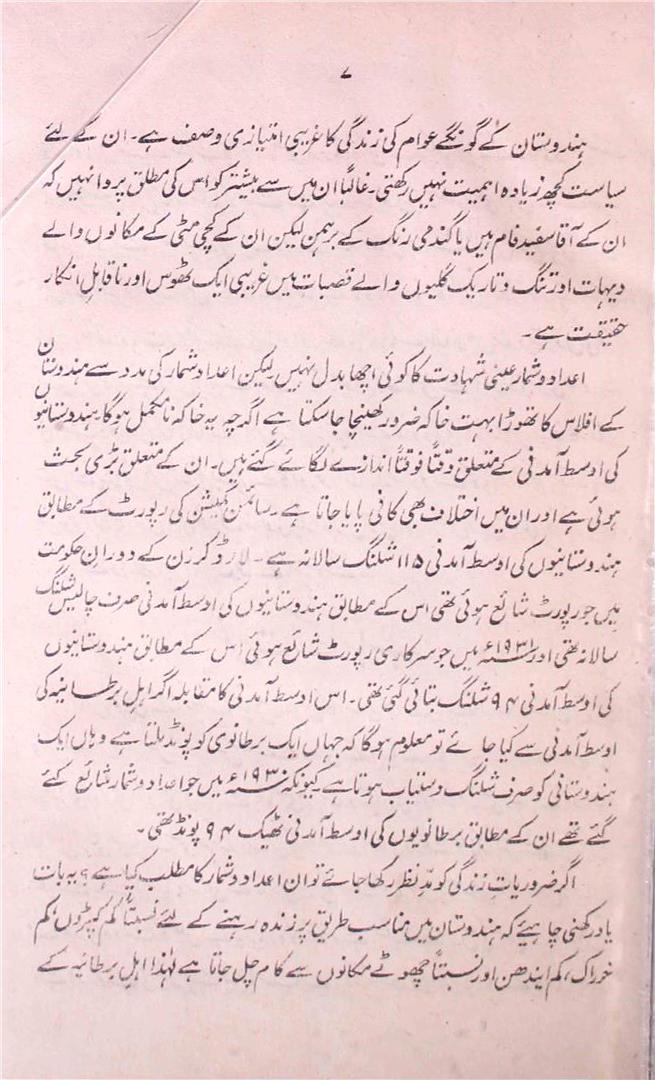 ۷
ہندوستان کے گونگے عوام کی زندگی کا غریبی امتیازی وصف ہے۔ ان کے لئے
سیاست کچھ زیادہ اہمیت نہیں رکھتی۔ غالباً ان میں سے بیشتر کو اس کی مطلق پروا نہیں کہ
ان کے آقا سفید فام ہیں یا گندمی رنگ کے برہمن لیکن ان کے کچی مٹی کے مکانوں والے
دیہات اور تنگ و تاریک گلیوں والے قصبات میں غریبی ایک ٹھوس اور ناقابلِ انکار
حقیقت ہے۔
اعداد و شمار عینی شہادت کا کوئی اچھا بدل نہیں لیکن اعداد و شمار کی مدد سے ہندوستان
کے افلاس کا تھوڑا بہت خاکہ ضرور کھینچا جا سکتا ہے اگرچہ یہ خاکہ نامکمل ہوگا۔ ہندوستانیوں
کی اوسط آمدنی کے متعلق وقتاً فوقتاً اندازے لگائے گئے ہیں۔ ان کے متعلق بڑی بحث
ہوئی ہے اور ان میں اختلاف بھی کافی پایا جاتا ہے۔ سائمن کمیشن کی رپورٹ کے مطابق
ہندوستانیوں کی اوسط آمدنی ۱۱۵ شلنگ سالانہ ہے۔ لارڈ کرزن کے دورانِ حکومت
میں جو رپورٹ شائع ہوئی تھی اس کے مطابق ہندوستانیوں کی اوسط آمدنی صرف چالیس شلنگ
سالانہ تھی اور ۱۹۳۱ء میں جو سرکاری رپورٹ شائع ہوئی اس کے مطابق ہندوستانیوں
کی اوسط آمدنی ۹۴ شلنگ بتائی گئی تھی۔ اس اوسط آمدنی کا مقابلہ اگر اہلِ برطانیہ کی
اوسط آمدنی سے کیا جائے تو معلوم ہوگا کہ جہاں ایک برطانوی کو پونڈ ملتا ہے وہاں ایک
ہندوستانی کو صرف شلنگ دستیاب ہوتا ہے کیونکہ ۱۹۳۰ء میں جو اعداد و شمار شائع کئے
گئے تھے ان کے مطابق برطانویوں کی اوسط آمدنی ٹھیک ۹۴ پونڈ تھی۔
اگر ضروریاتِ زندگی کو مدِّ نظر رکھا جائے تو ان اعداد و شمار کا مطلب کیا ہے؟ یہ بات
یاد رکھنی چاہیئے کہ ہندوستان میں مناسب طریق پر زندہ رہنے کے لئے نسبتاً کم کپڑوں، کم
خوراک، کم ایندھن اور نسبتاً چھوٹے مکانوں سے کام چل جاتا ہے لہٰذا اہلِ برطانیہ کے